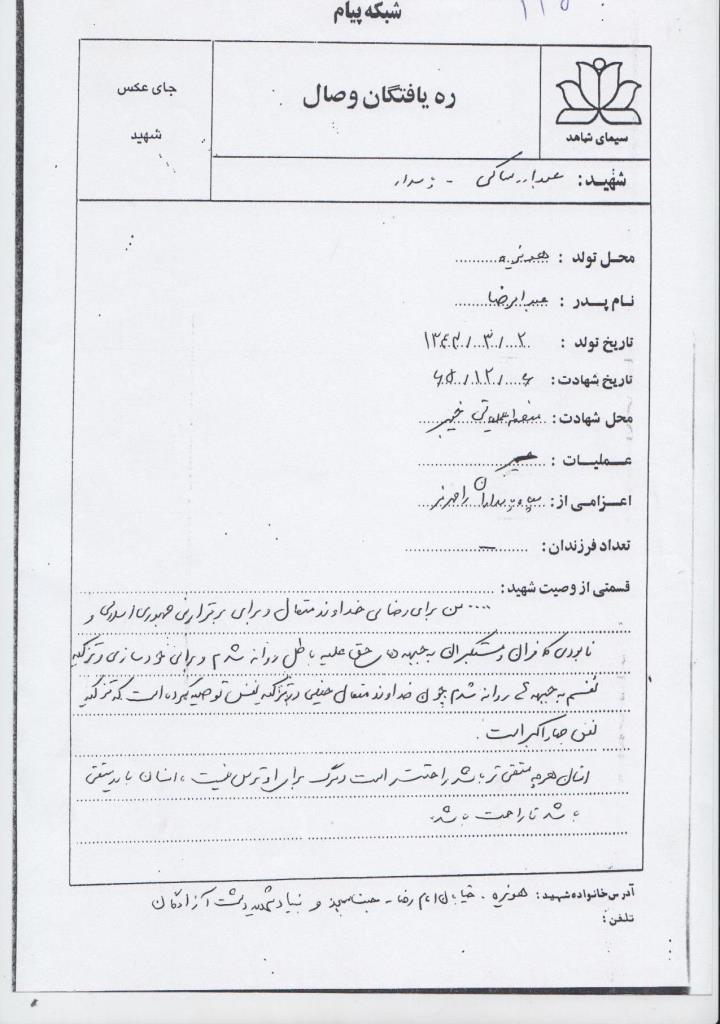 شبکه پیام
ره یافتگان وصال
جای عکس
شهید
سیمای شاهد
شهید: ساکی - پاسدار
محل تولد : هویزه
نام پدر : عبدالرضا
تاریخ تولد : ۲ / ۳ / ۱۳۴۲
تاریخ شهادت: ۶ / ۱۲ / ۶۵
محل شهادت: منطقه عملیاتی خیبر
عملیات : خیبر
اعزامی از: سپاه پاسداران
تعداد فرزندان: —
قسمتی از وصیت شهید:
.... من برای رضای خداوند متعال و برای برقراری جمهوری اسلامی و
نابودی کافران و مستکبران به جبهه های حق علیه باطل روانه شدم و برای خودسازی و تزکیه
نفسم به جبهه روانه شدم چون خداوند متعال خیلی در تزکیه نفس توصیه کرده است که تزکیه
نفس جهاد اکبر است.
انسان هر چه متقی تر باشد راحتتر است و مرگ برای او ترس نیست، انسان باید متقی
باشد تا راحت باشد.
آدرس خانواده شهید: هویزه - خیابان امام رضا - جنب و بنیاد شهید دشت آزادگان
تلفن: